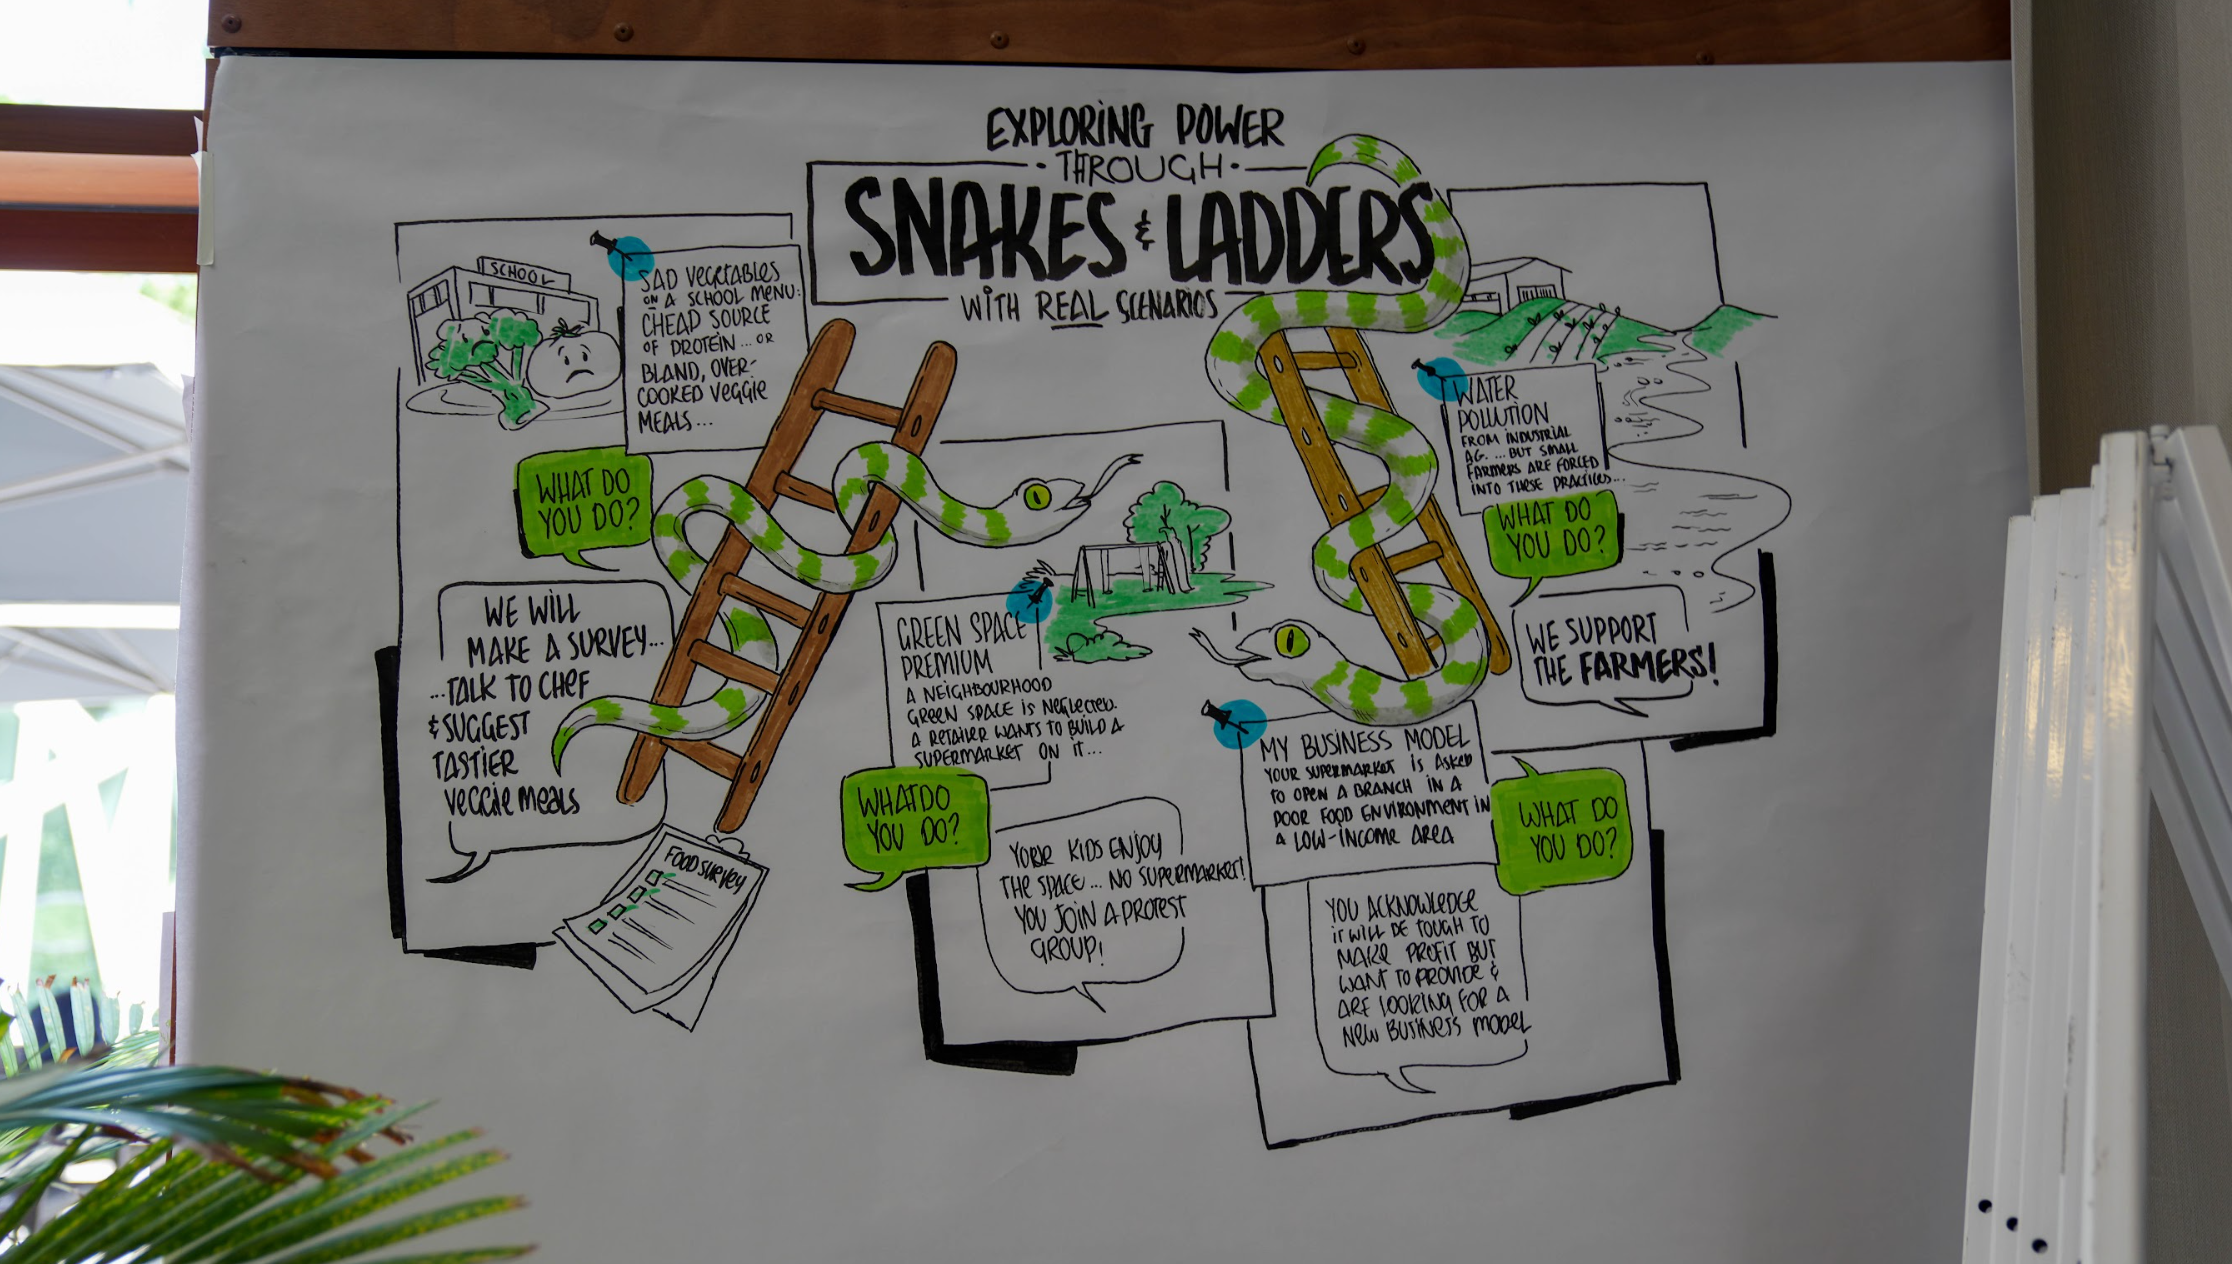 EXPLORING POWER
· THROUGH ·
SNAKES & LADDERS
WITH REAL SCENARIOS
SCHOOL
SAD VEGETABLES
ON A SCHOOL MENU:
CHEAP SOURCE
OF PROTEIN ... OR
BLAND, OVER-
COOKED VEGGIE
MEALS ...
WHAT DO
YOU DO?
WE WILL
MAKE A SURVEY...
...TALK TO CHEF
& SUGGEST
TASTIER
VEGGIE MEALS
FOOD SURVEY
GREEN SPACE
PREMIUM
A NEIGHBOURHOOD
GREEN SPACE IS NEGLECTED.
A RETAILER WANTS TO BUILD A
SUPERMARKET ON IT...
WHAT DO
YOU DO?
YOUR KIDS ENJOY
THE SPACE ... NO SUPERMARKET!
YOU JOIN A PROTEST
GROUP!
WATER
POLLUTION
FROM INDUSTRIAL
AG. ... BUT SMALL
FARMERS ARE FORCED
INTO THESE PRACTICES...
WHAT DO
YOU DO?
WE SUPPORT
THE FARMERS!
MY BUSINESS MODEL
YOUR SUPERMARKET IS ASKED
TO OPEN A BRANCH IN A
POOR FOOD ENVIRONMENT IN
A LOW-INCOME AREA
WHAT DO
YOU DO?
YOU ACKNOWLEDGE
IT WILL BE TOUGH TO
MAKE PROFIT BUT
WANT TO PROVIDE &
ARE LOOKING FOR A
NEW BUSINESS MODEL